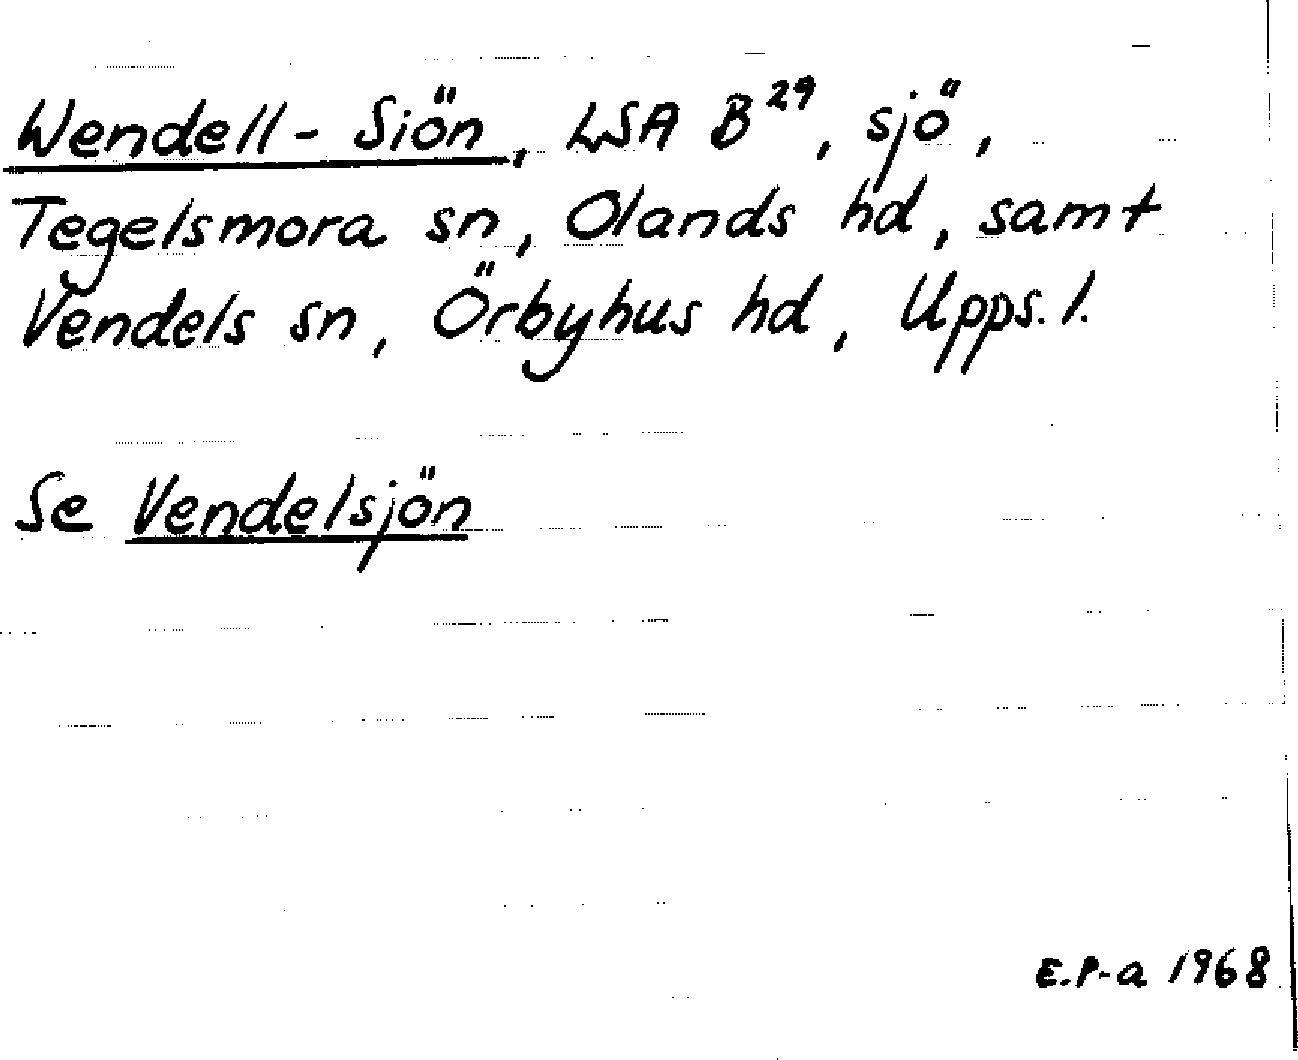 Wendell-Siön, LSA B29, sjö,
Tegelsmora sn, Olands hd, samt
Vendels sn, Örbyhus hd, Upps. l.
Se Vendelsjön
E.P-a 1968